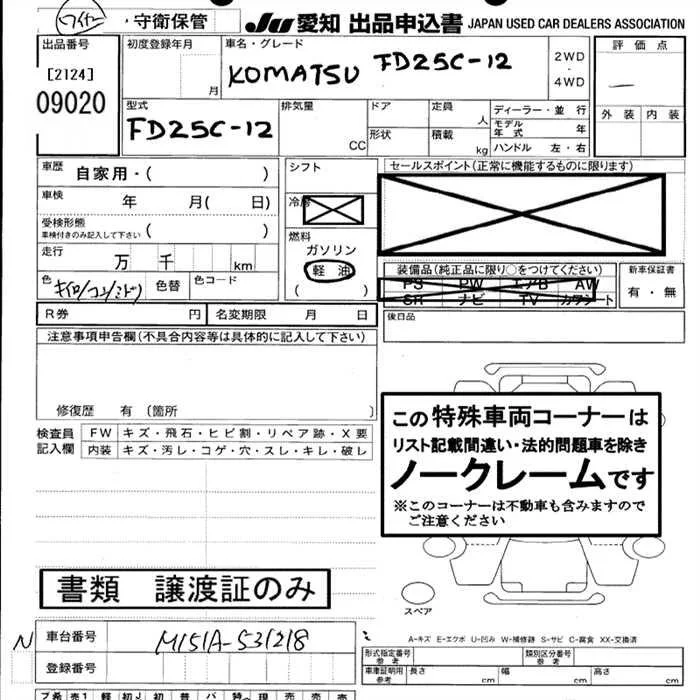 ワイヤー ・守衛保管
JU 愛知 出品申込書 JAPAN USED CAR DEALERS ASSOCIATION
出品番号
[2124]
09020
初度登録年月
月
車名・グレード
KOMATSU FD25C-12
2WD
・
4WD
評価点
外装 内装
型式
FD25C-12
排気量
CC
ドア
形状
定員
人
積載
kg
ディーラー・並行
モデル年式 年
ハンドル 左・右
車歴
自家用・( )
車検
年 月( 日)
受検形態
車検付きのみ記入して下さい ( )
走行
万 千 km
色
色替
色コード
シフト
冷房
燃料
ガソリン
軽油
( )
セールスポイント(正常に機能するものに限ります)
装備品(純正品に限り○をつけてください)
PS PW エアB AW
SR ナビ TV カワシート
新車保証書
有・無
後日品
R券 円 名変期限 月 日
注意事項申告欄(不具合内容等は具体的に記入して下さい)
修復歴 有 〔箇所 〕
検査員
記入欄
FW キズ・飛石・ヒビ割・リペア跡・X要
内装 キズ・汚レ・コゲ・穴・スレ・キレ・破レ
この特殊車両コーナーは
リスト記載間違い・法的問題車を除き
ノークレームです
※このコーナーは不動車も含みますので
ご注意ください
書類 譲渡証のみ
スペア
A-キズ E-エクボ U-凹み W-補修跡 S-サビ C-腐食 XX-交換済
N 車台番号 M151A-531218
登録番号
形式指定番号
参考
類別区分番号
参考
車庫証明用
参考
長さ cm 幅 cm 高さ cm